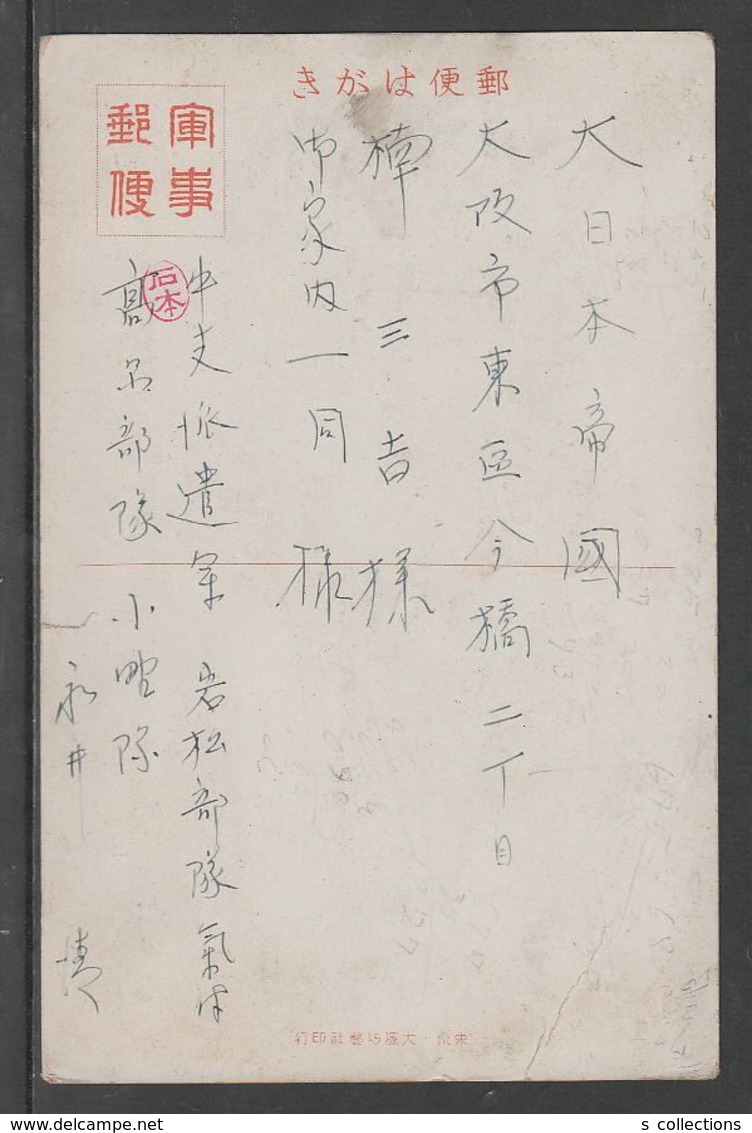 郵便はがき
軍事
郵便
大日本帝國
大阪市東區今橋二丁目
楠三吉様
御家内一同様
中支派遣軍 岩松部隊氣付
石本
高品部隊 小野隊
永井 清
東京・大塚巧藝社印行
s collections